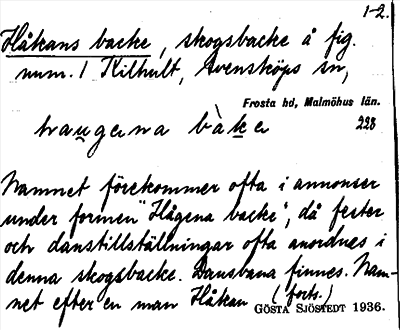 1-2.
Håkans backe, skogsbacke å fig.
num. 1 Kilhult, Svensköps sn,
Frosta hd, Malmöhus län.
haugena bàka 228
Namnet förekommer ofta i annonser
under formen "Hågena backe", då fester
och danstillställningar ofta anordnes i
denna skogsbacke. Dansbana finnes. Nam-
net efter en man Håkan (forts.)
GÖSTA SJÖSTEDT 1936.